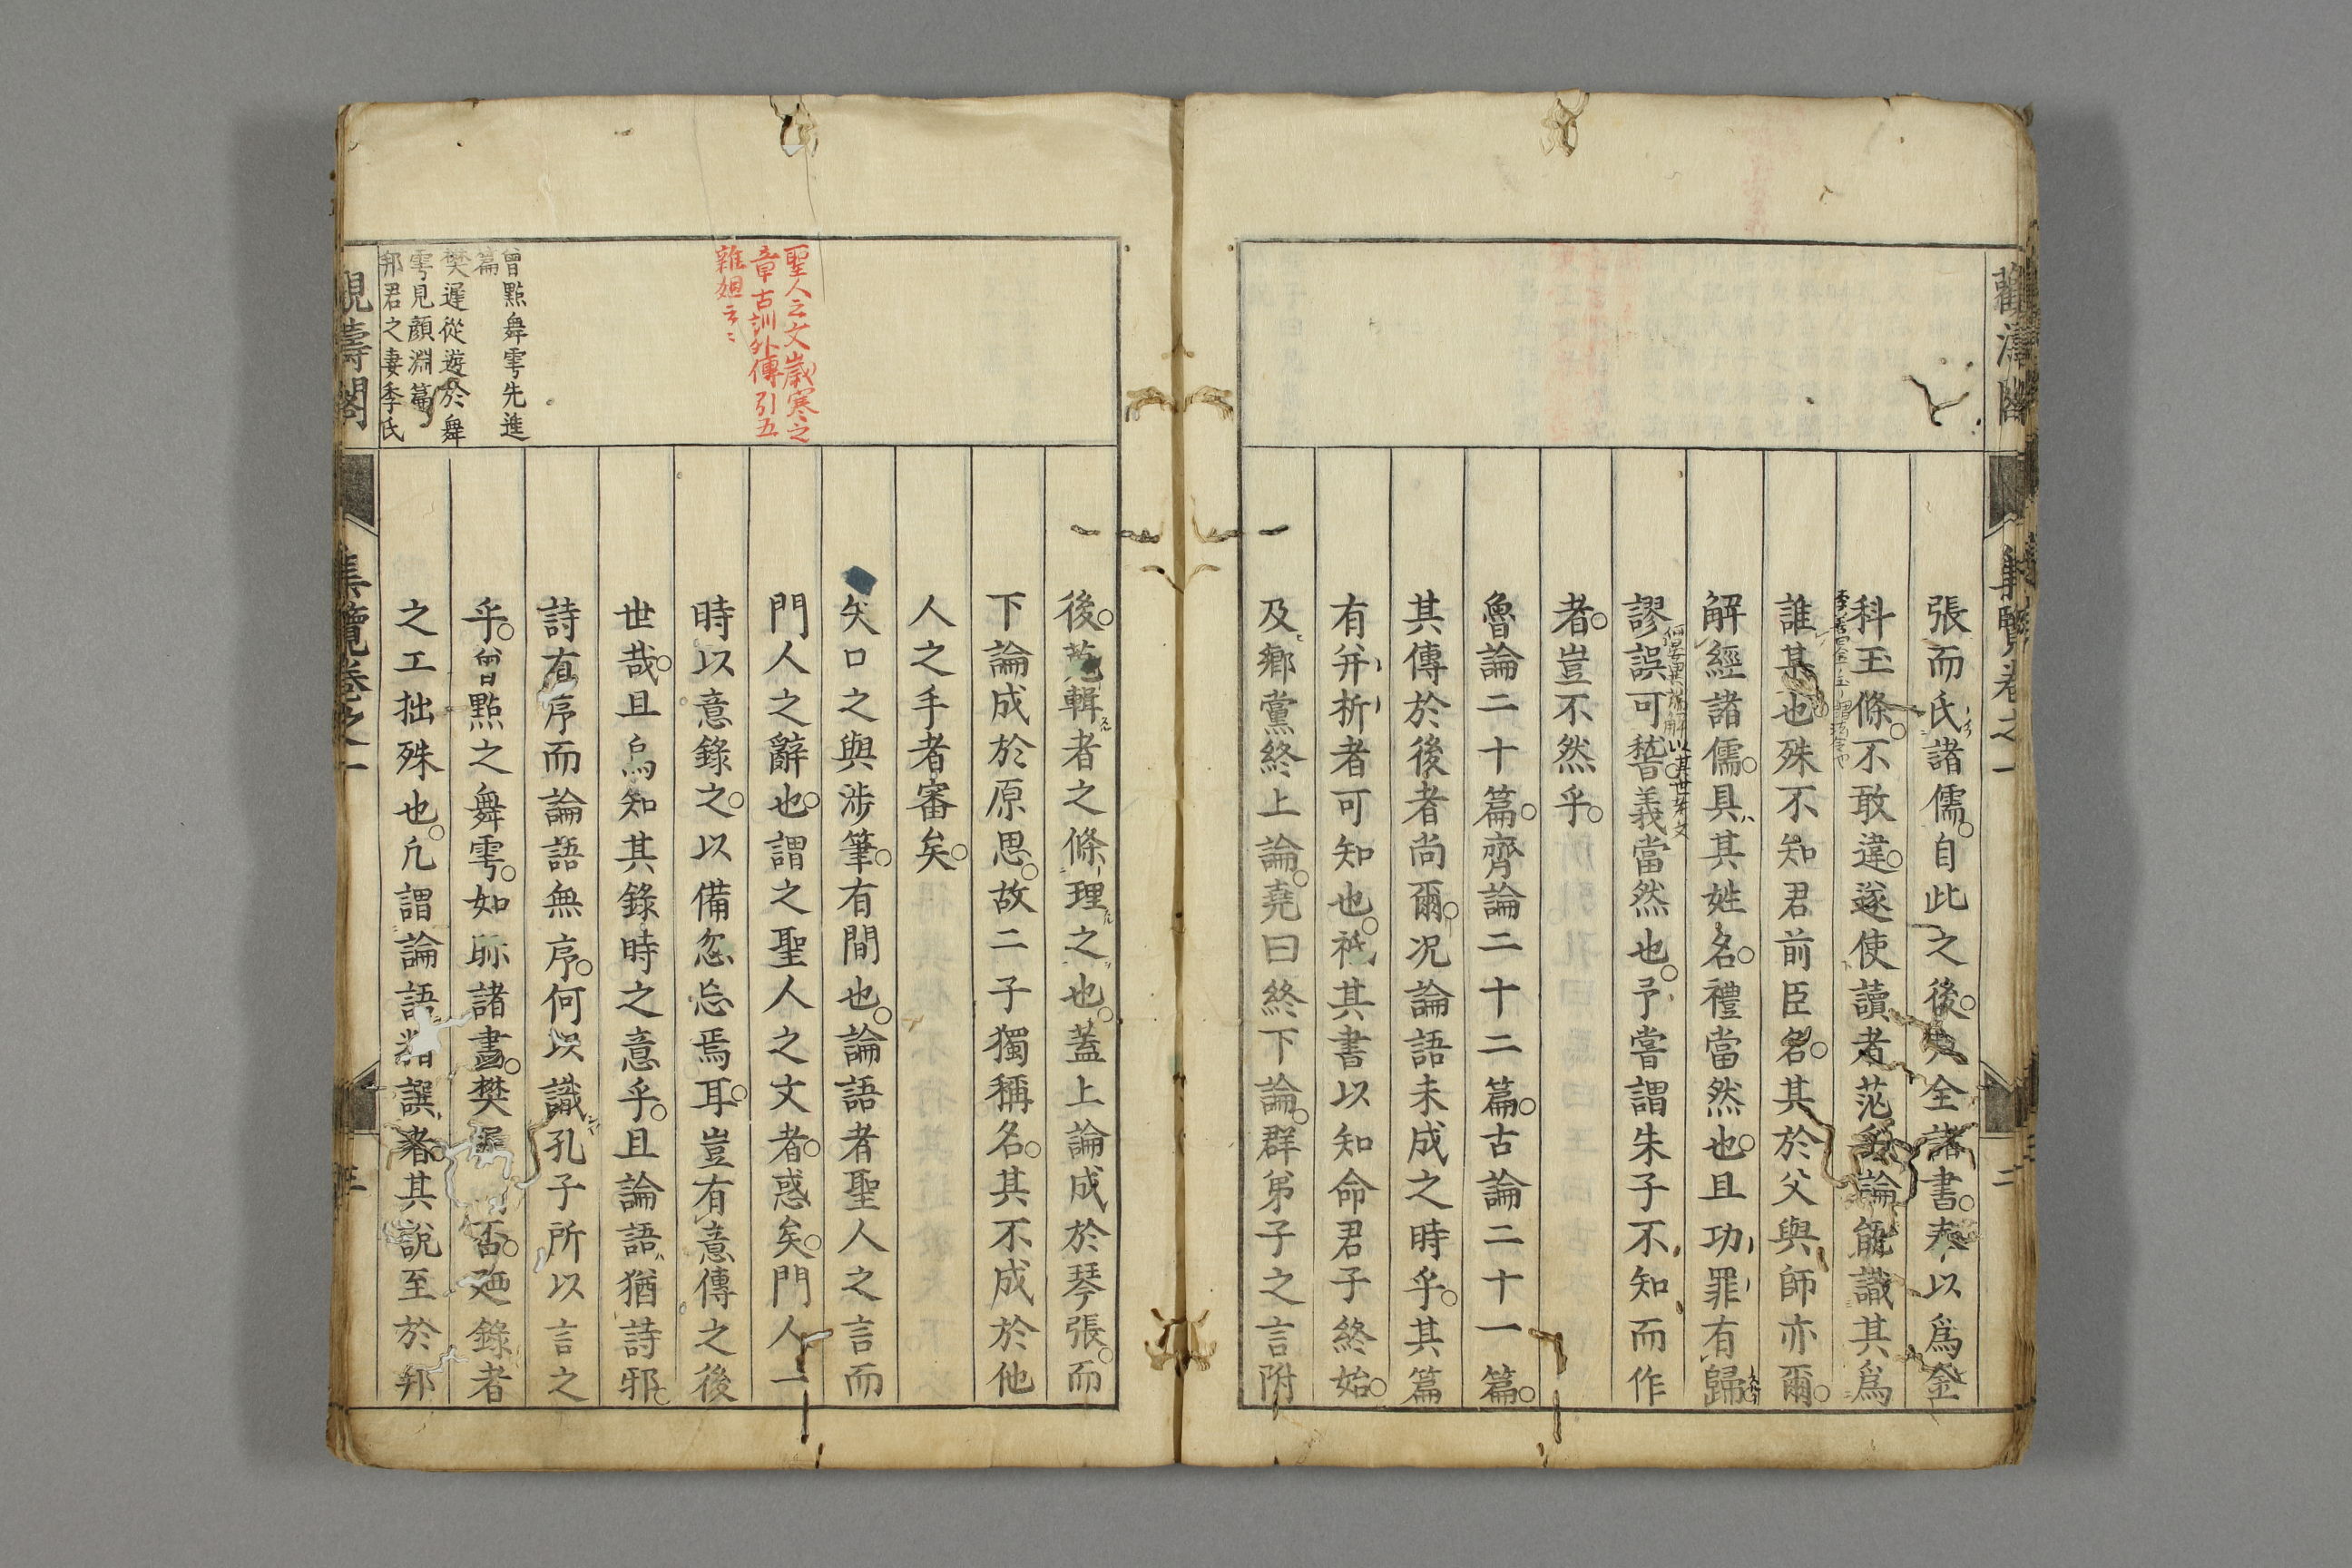 張而氏諸儒自此之後大全諸書奉以爲金
科玉條不敢違遂使讀者茫乎論能識其爲
誰某也殊不知君前臣名其於父與師亦爾
解經諸儒具其姓名禮當然也且功罪有歸
謬誤可嵆義當然也予嘗謂朱子不知而作
者豈不然乎
魯論二十篇齊論二十二篇古論二十一篇
其傳於後者尚爾况論語未成之時乎其篇
有并析者可知也秪其書以知命君子終始
及鄉黨終上論堯曰終下論群弟子之言附
後苑輯者之條理之也蓋上論成於琴張而
下論成於原思故二子獨稱名其不成於他
人之手者審矣
矢口之與涉筆有間也論語者聖人之言而
門人之辭也謂之聖人之文者惑矣門人一
時以意錄之以備忽忘焉耳豈有意傳之後
世哉且烏知其錄時之意乎且論語猶詩邪
詩有序而論語無序何以識孔子所以言之
乎曾點之舞雩如眎諸畫樊遲否廼錄者
之工拙殊也凡謂論語精譔者其説至於邦
聖人之文歳寒之
章古訓外傳引五
雜爼云〻
曾點舞雩先進
篇
樊遲從遊於舞
雩見顔淵篇
邦君之妻季氏
觀濤閣
集覽卷之一
二